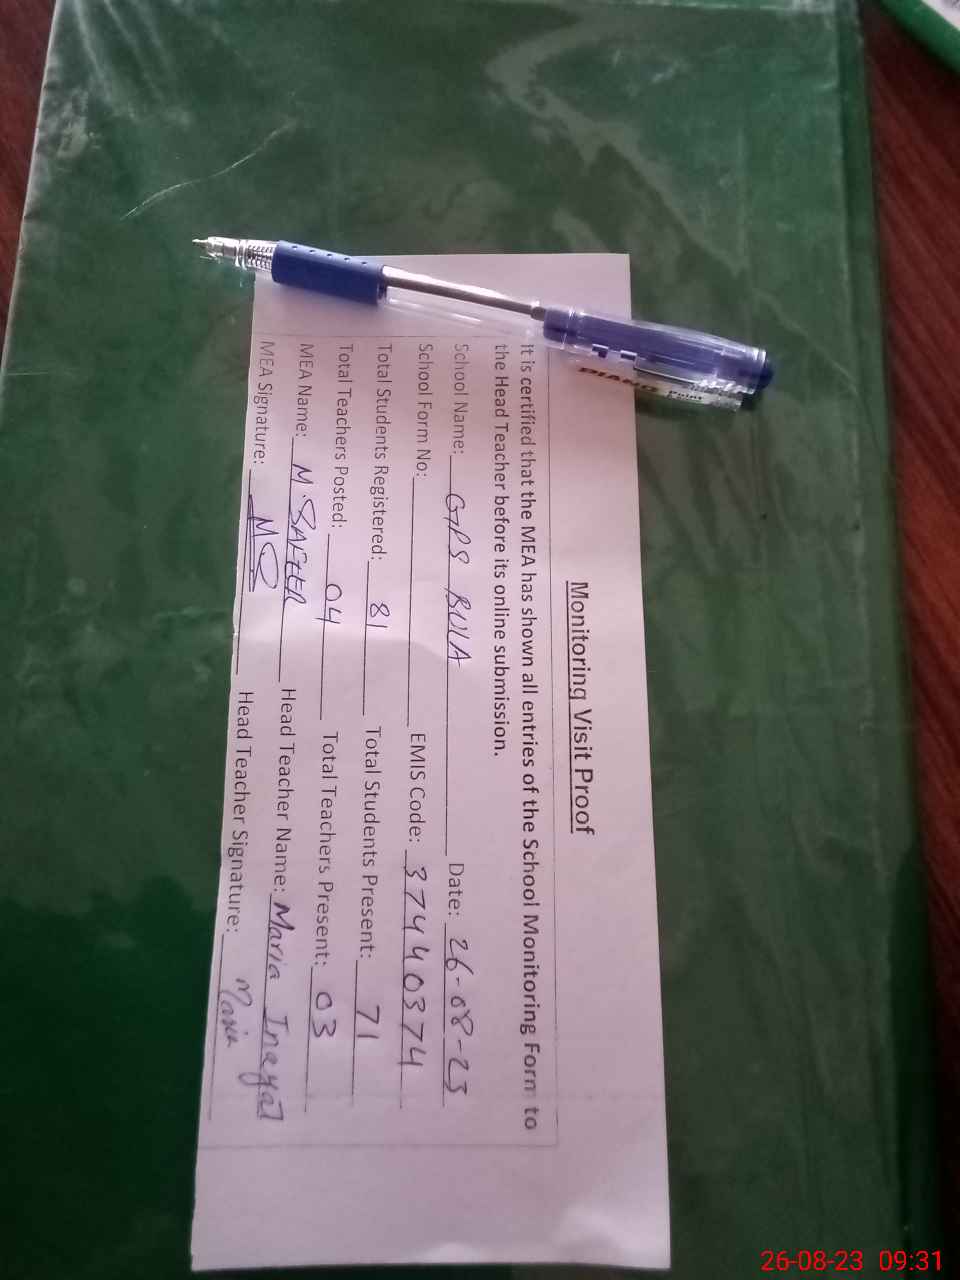 Monitoring Visit Proof
It is certified that the MEA has shown all entries of the School Monitoring Form to
the Head Teacher before its online submission.
School Name: GPS BULA Date: 26-08-23
School Form No: EMIS Code: 37440374
Total Students Registered: 81 Total Students Present: 71
Total Teachers Posted: 04 Total Teachers Present: 03
MEA Name: M. SAFEER Head Teacher Name: Maria Inayat
MEA Signature: MS Head Teacher Signature: Maria
PIANO Point
26-08-23 09:31